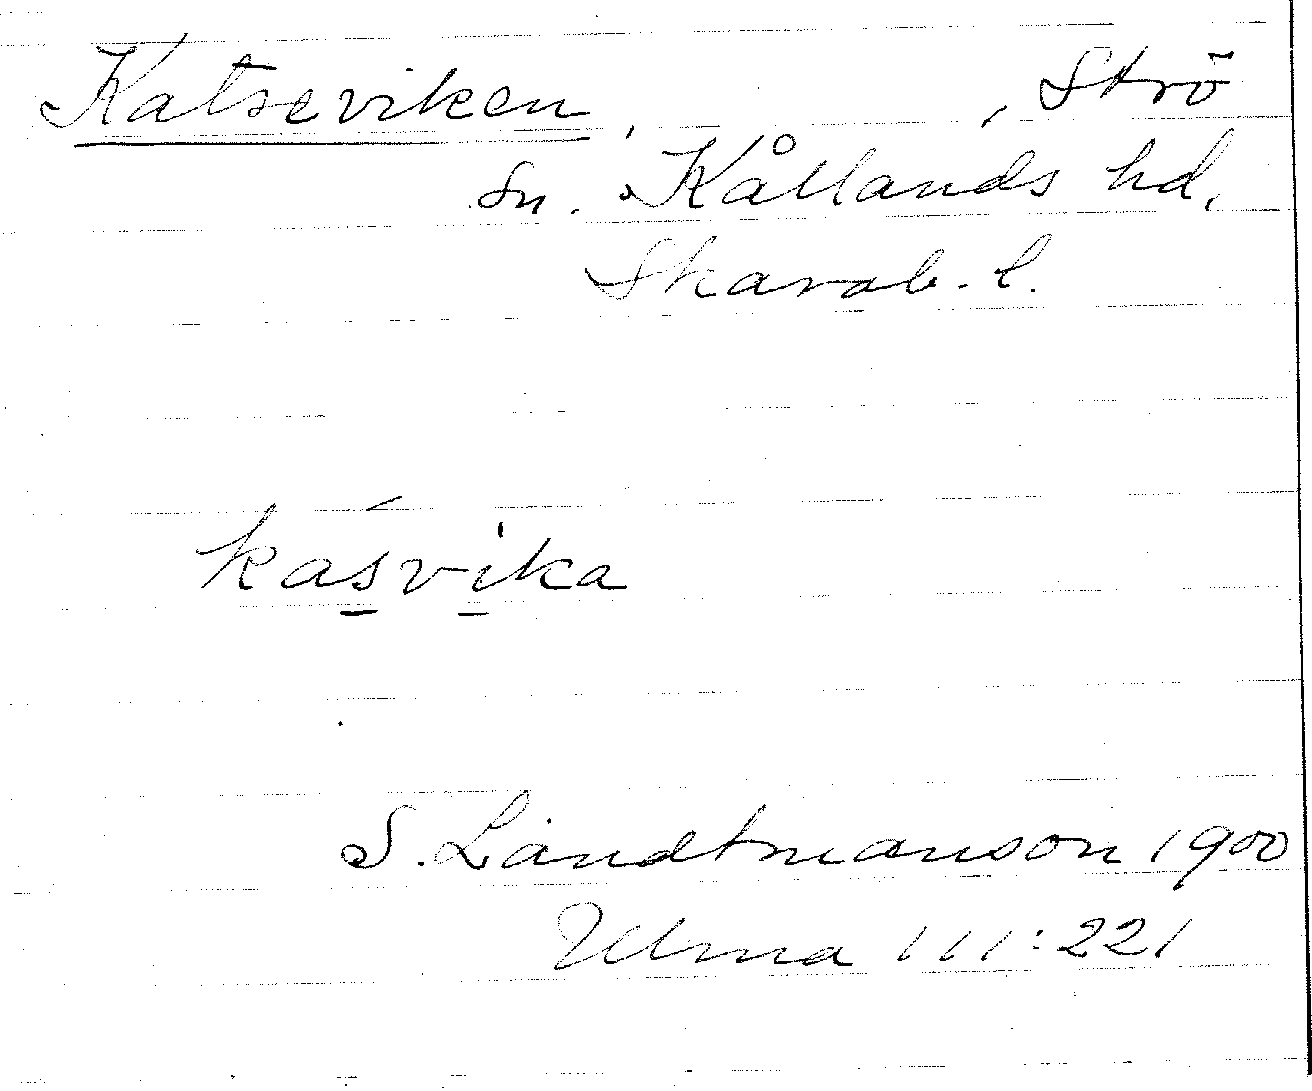 Katseviken, , Strö
sn. Kållands hd,
Skarab. l.
kasvika
S. Landtmanson 1900
Ulma 111:221